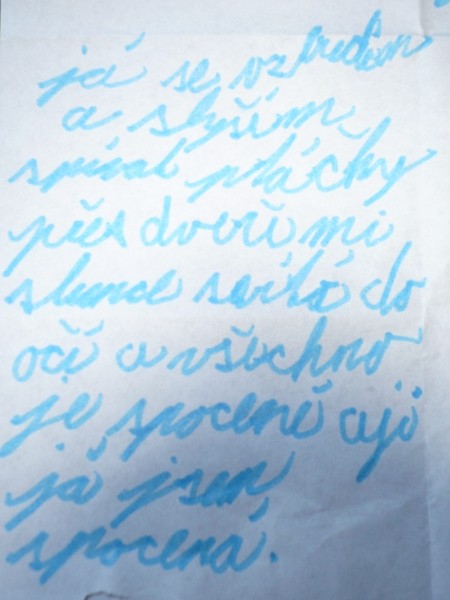 já se vzbudem
a slyším
spívat ptáchy
přes dveři mi
slunce svítá do
oči a všechno
je spocené aji
já jsem
spocená.